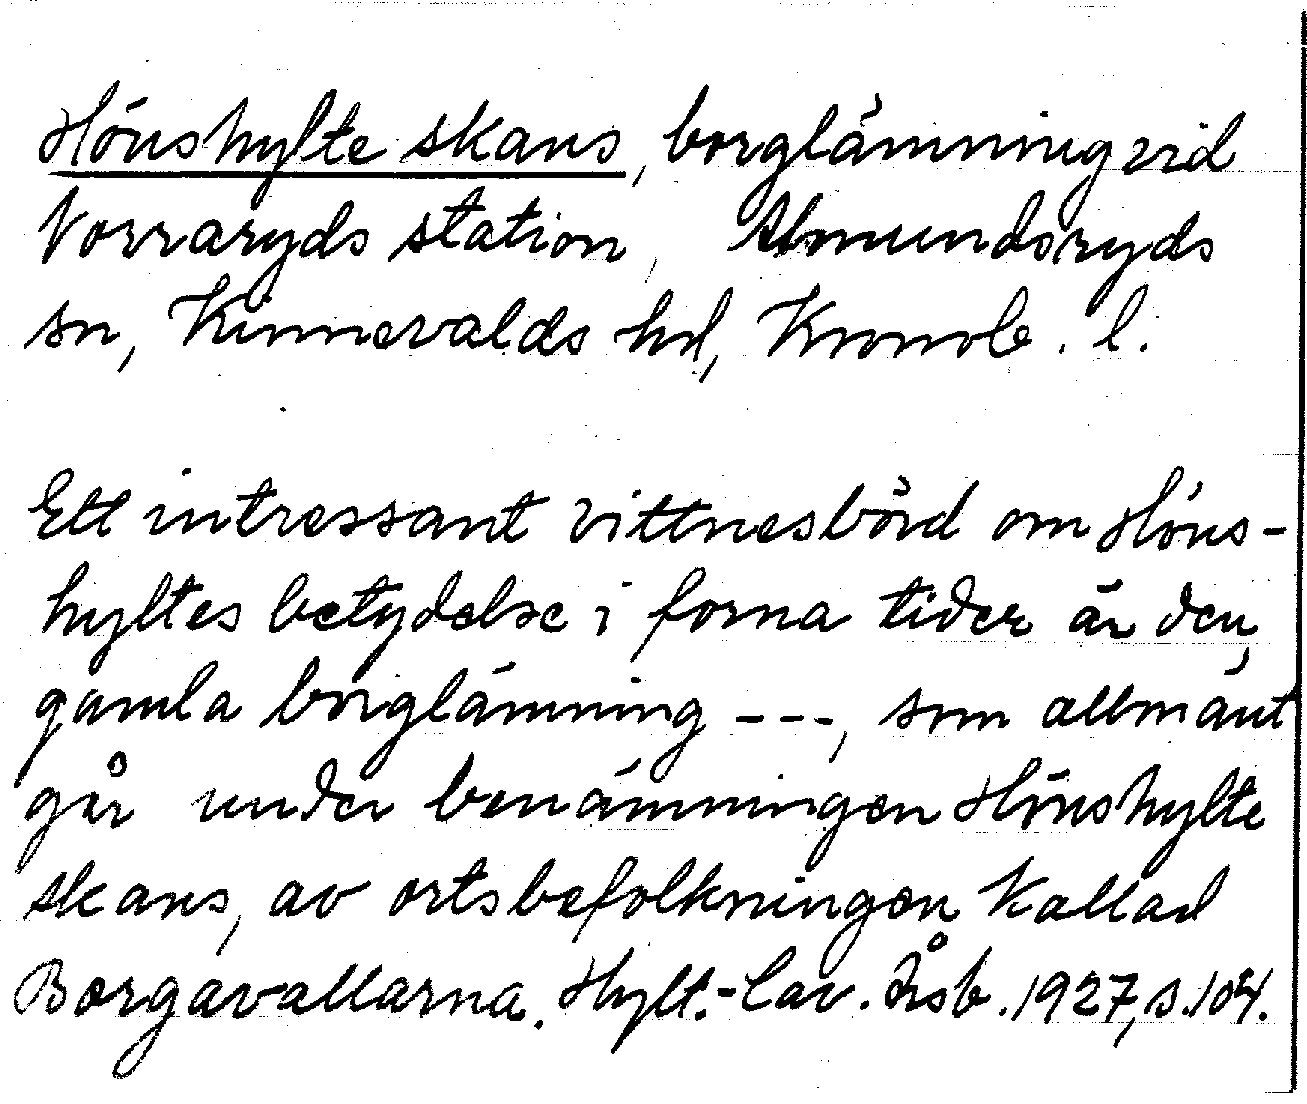 Hönshylte skans, borglämning vid
Norraryds station, Almundsryds
sn, Kinnevalds hd, Kronob. l.
Ett intressant vittnesbörd om Höns-
hyltes betydelse i forna tider är den
gamla borglämning ---, som allmänt
går under benämningen Hönshylte
skans, av ortsbefolkningen kallad
Borgavallarna. Hylt.-Cav. Årsb. 1927, s. 104.